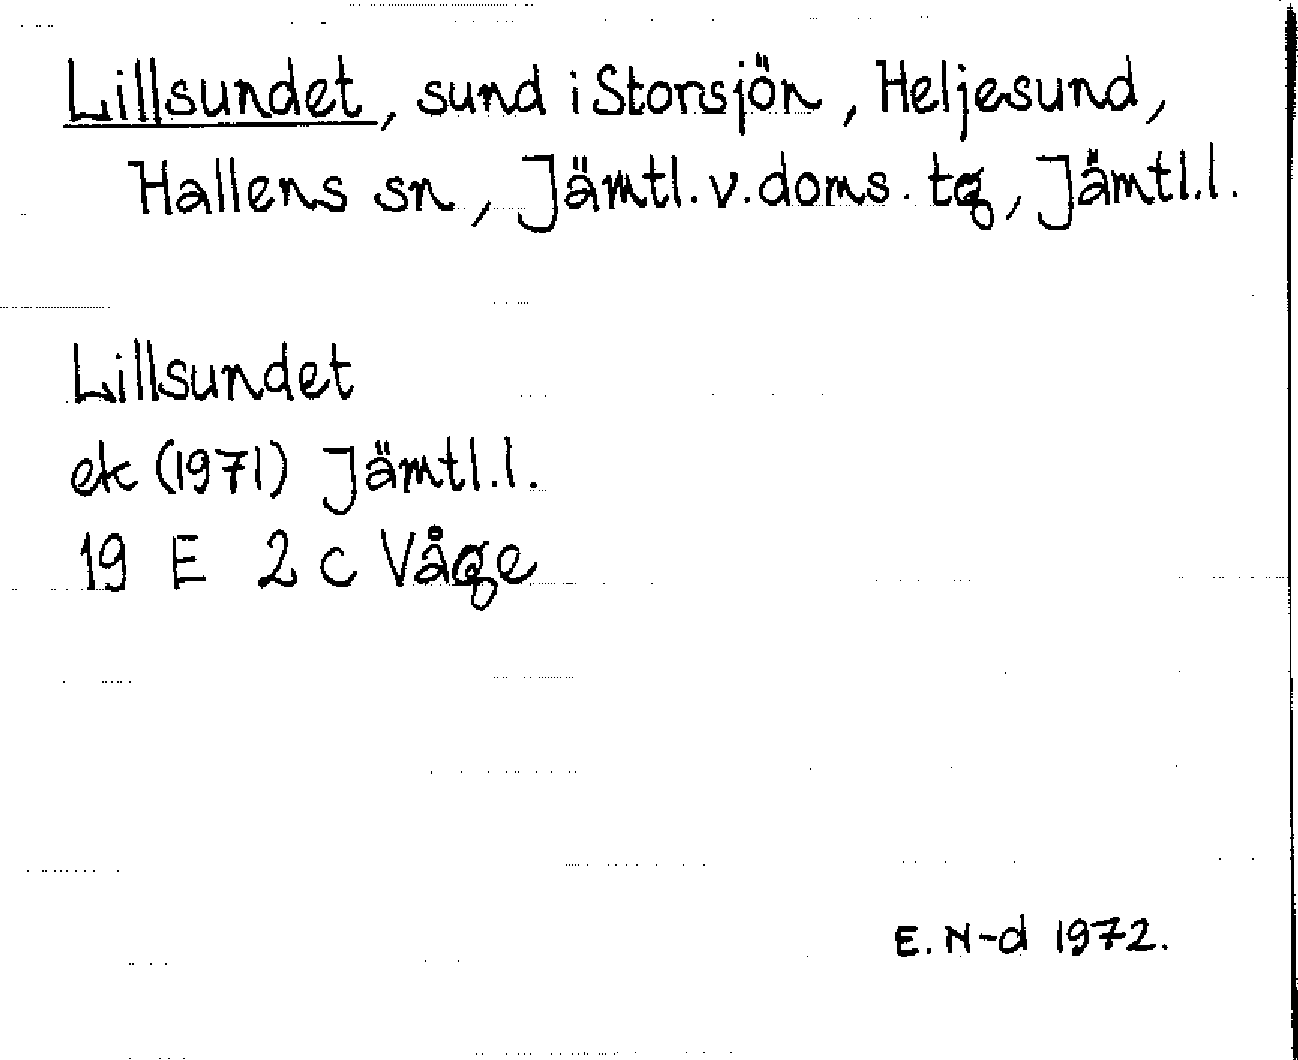 Lillsundet, sund i Storsjön, Heljesund,
Hallens sn, Jämtl. v. doms. tg, Jämtl.l.
Lillsundet
ek (1971) Jämtl.l.
19 E 2 c Våge
E. N-d 1972.